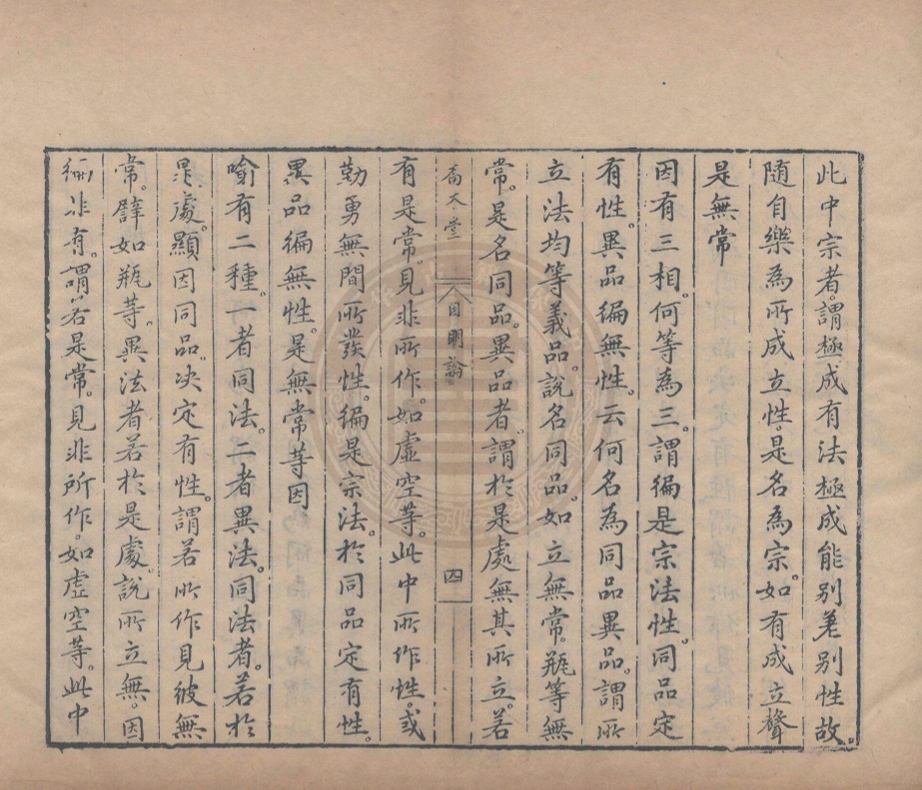 此中宗者。謂極成有法極成能别差别性故。
隨自樂為所成立性。是名為宗。如有成立聲
是無常
因有三相。何等為三。謂徧是宗法性。同品定
有性。異品徧無性。云何名為同品異品。謂所
立法均等義品。說名同品。如立無常。瓶等無
常。是名同品。異品者。謂於是處無其所立。若
喬天堂 因明論 四
有是常。見非所作。如虛空等。此中所作性或
勤勇無間所發性。徧是宗法。於同品定有性。
異品徧無性。是無常等因
喻有二種。一者同法。二者異法。同法者。若於
是處。顯因同品。决定有性。謂若所作見彼無
常。譬如瓶等。異法者若於是處。說所立無。因
徧非有。謂若是常。見非所作。如虛空等。此中